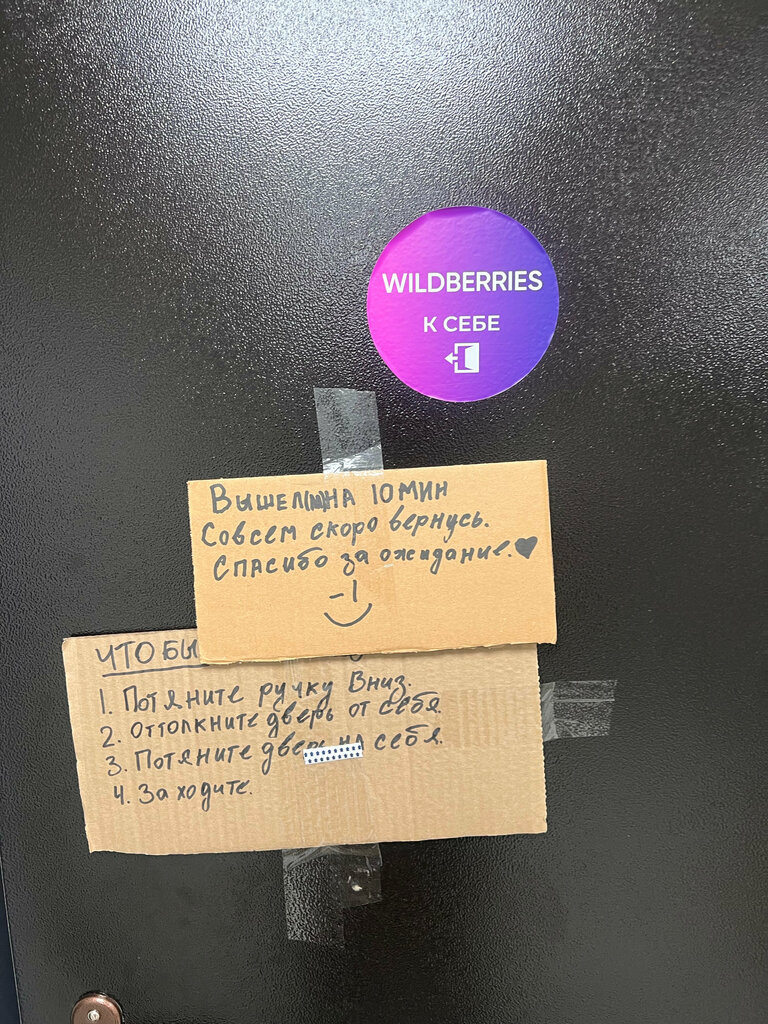 WILDBERRIES
К СЕБЕ
Вышел(ла) на 10 мин
Совсем скоро вернусь.
Спасибо за ожидание.♥
ЧТОБЫ
1. Потяните ручку вниз.
2. Оттолкните дверь от себя.
3. Потяните дверь на себя.
4. Заходите.